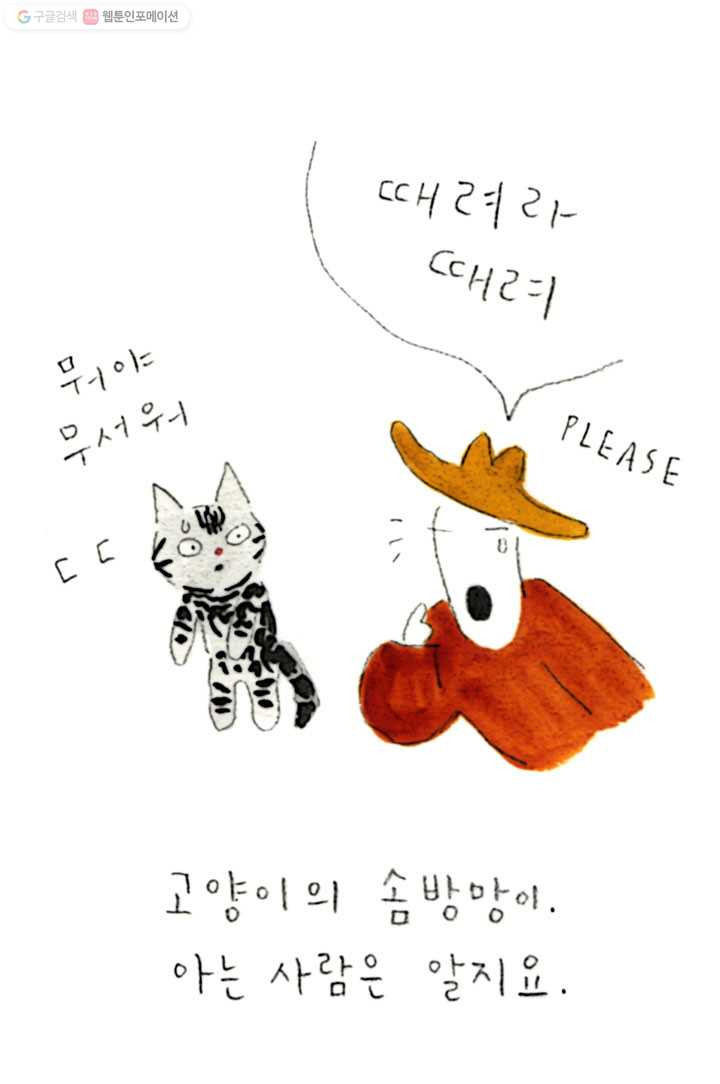 구글검색 웹툰인포메이션
때려라
때려
PLEASE
뭐야
무서워
ㄷㄷ
고양이의 솜방망이.
아는 사람은 알지요.